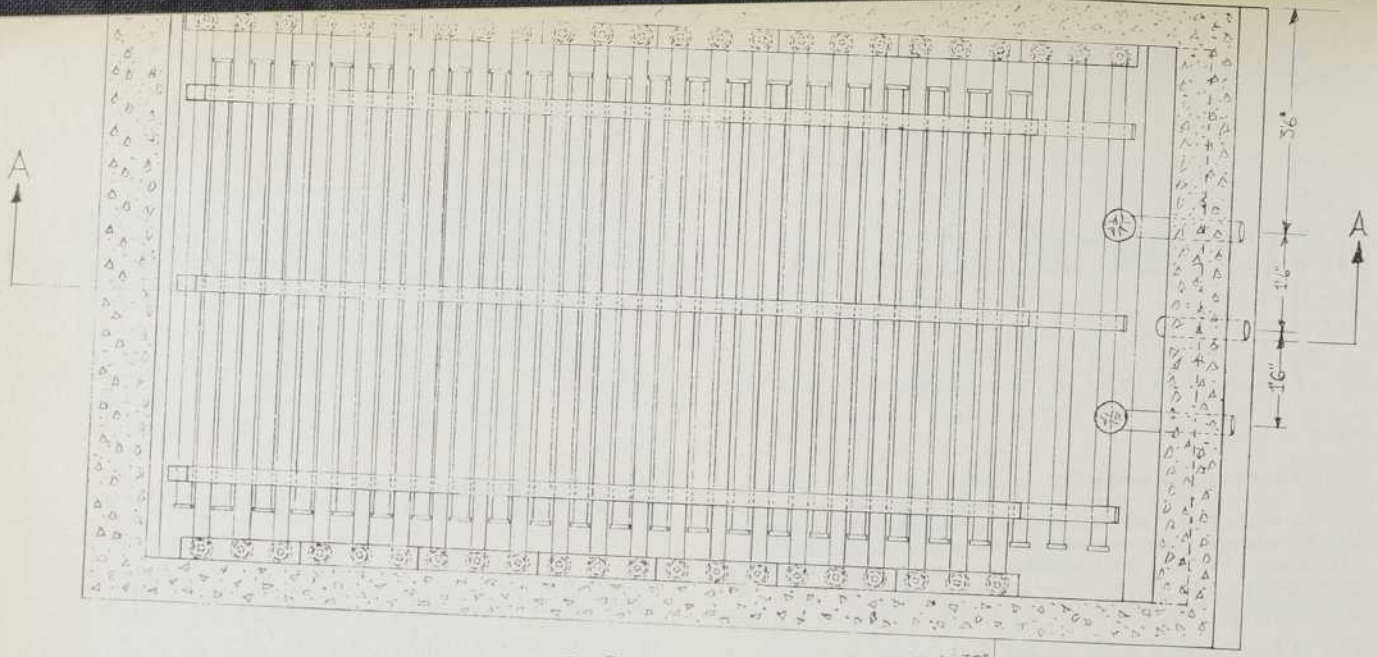 A
A
3'6"
1'6"
1'6"